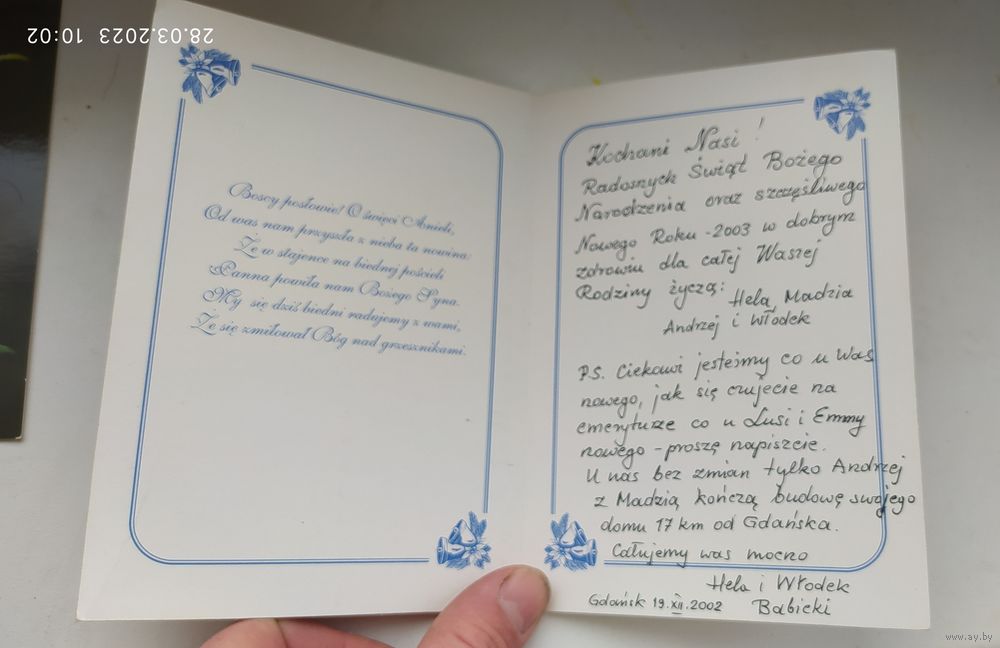 28.03.2023 10:02
Boscy posłowie! O święci Anieli,
Od was nam przyszła z nieba ta nowina:
Że w stajence na biednej pościeli
Panna powiła nam Bożego Syna.
My się dziś biedni radujemy z wami,
Że się zmiłował Bóg nad grzesznikami.
Kochani Nasi !
Radosnych Świąt Bożego
Narodzenia oraz szczęśliwego
Nowego Roku - 2003 w dobrym
zdrowiu dla całej Waszej
Rodziny życzą:
Hela, Madzia
Andrzej i Włodek
PS. Ciekawi jesteśmy co u Was
nowego, jak się czujecie na
emeryturze co u Lusi i Emmy
nowego - proszę napiszcie.
U nas bez zmian tylko Andrzej
z Madzią kończą budowę swojego
domu 17 km od Gdańska.
Całujemy was mocno
Hela i Włodek
Babicki
Gdańsk 19.XII.2002
www.ay.by